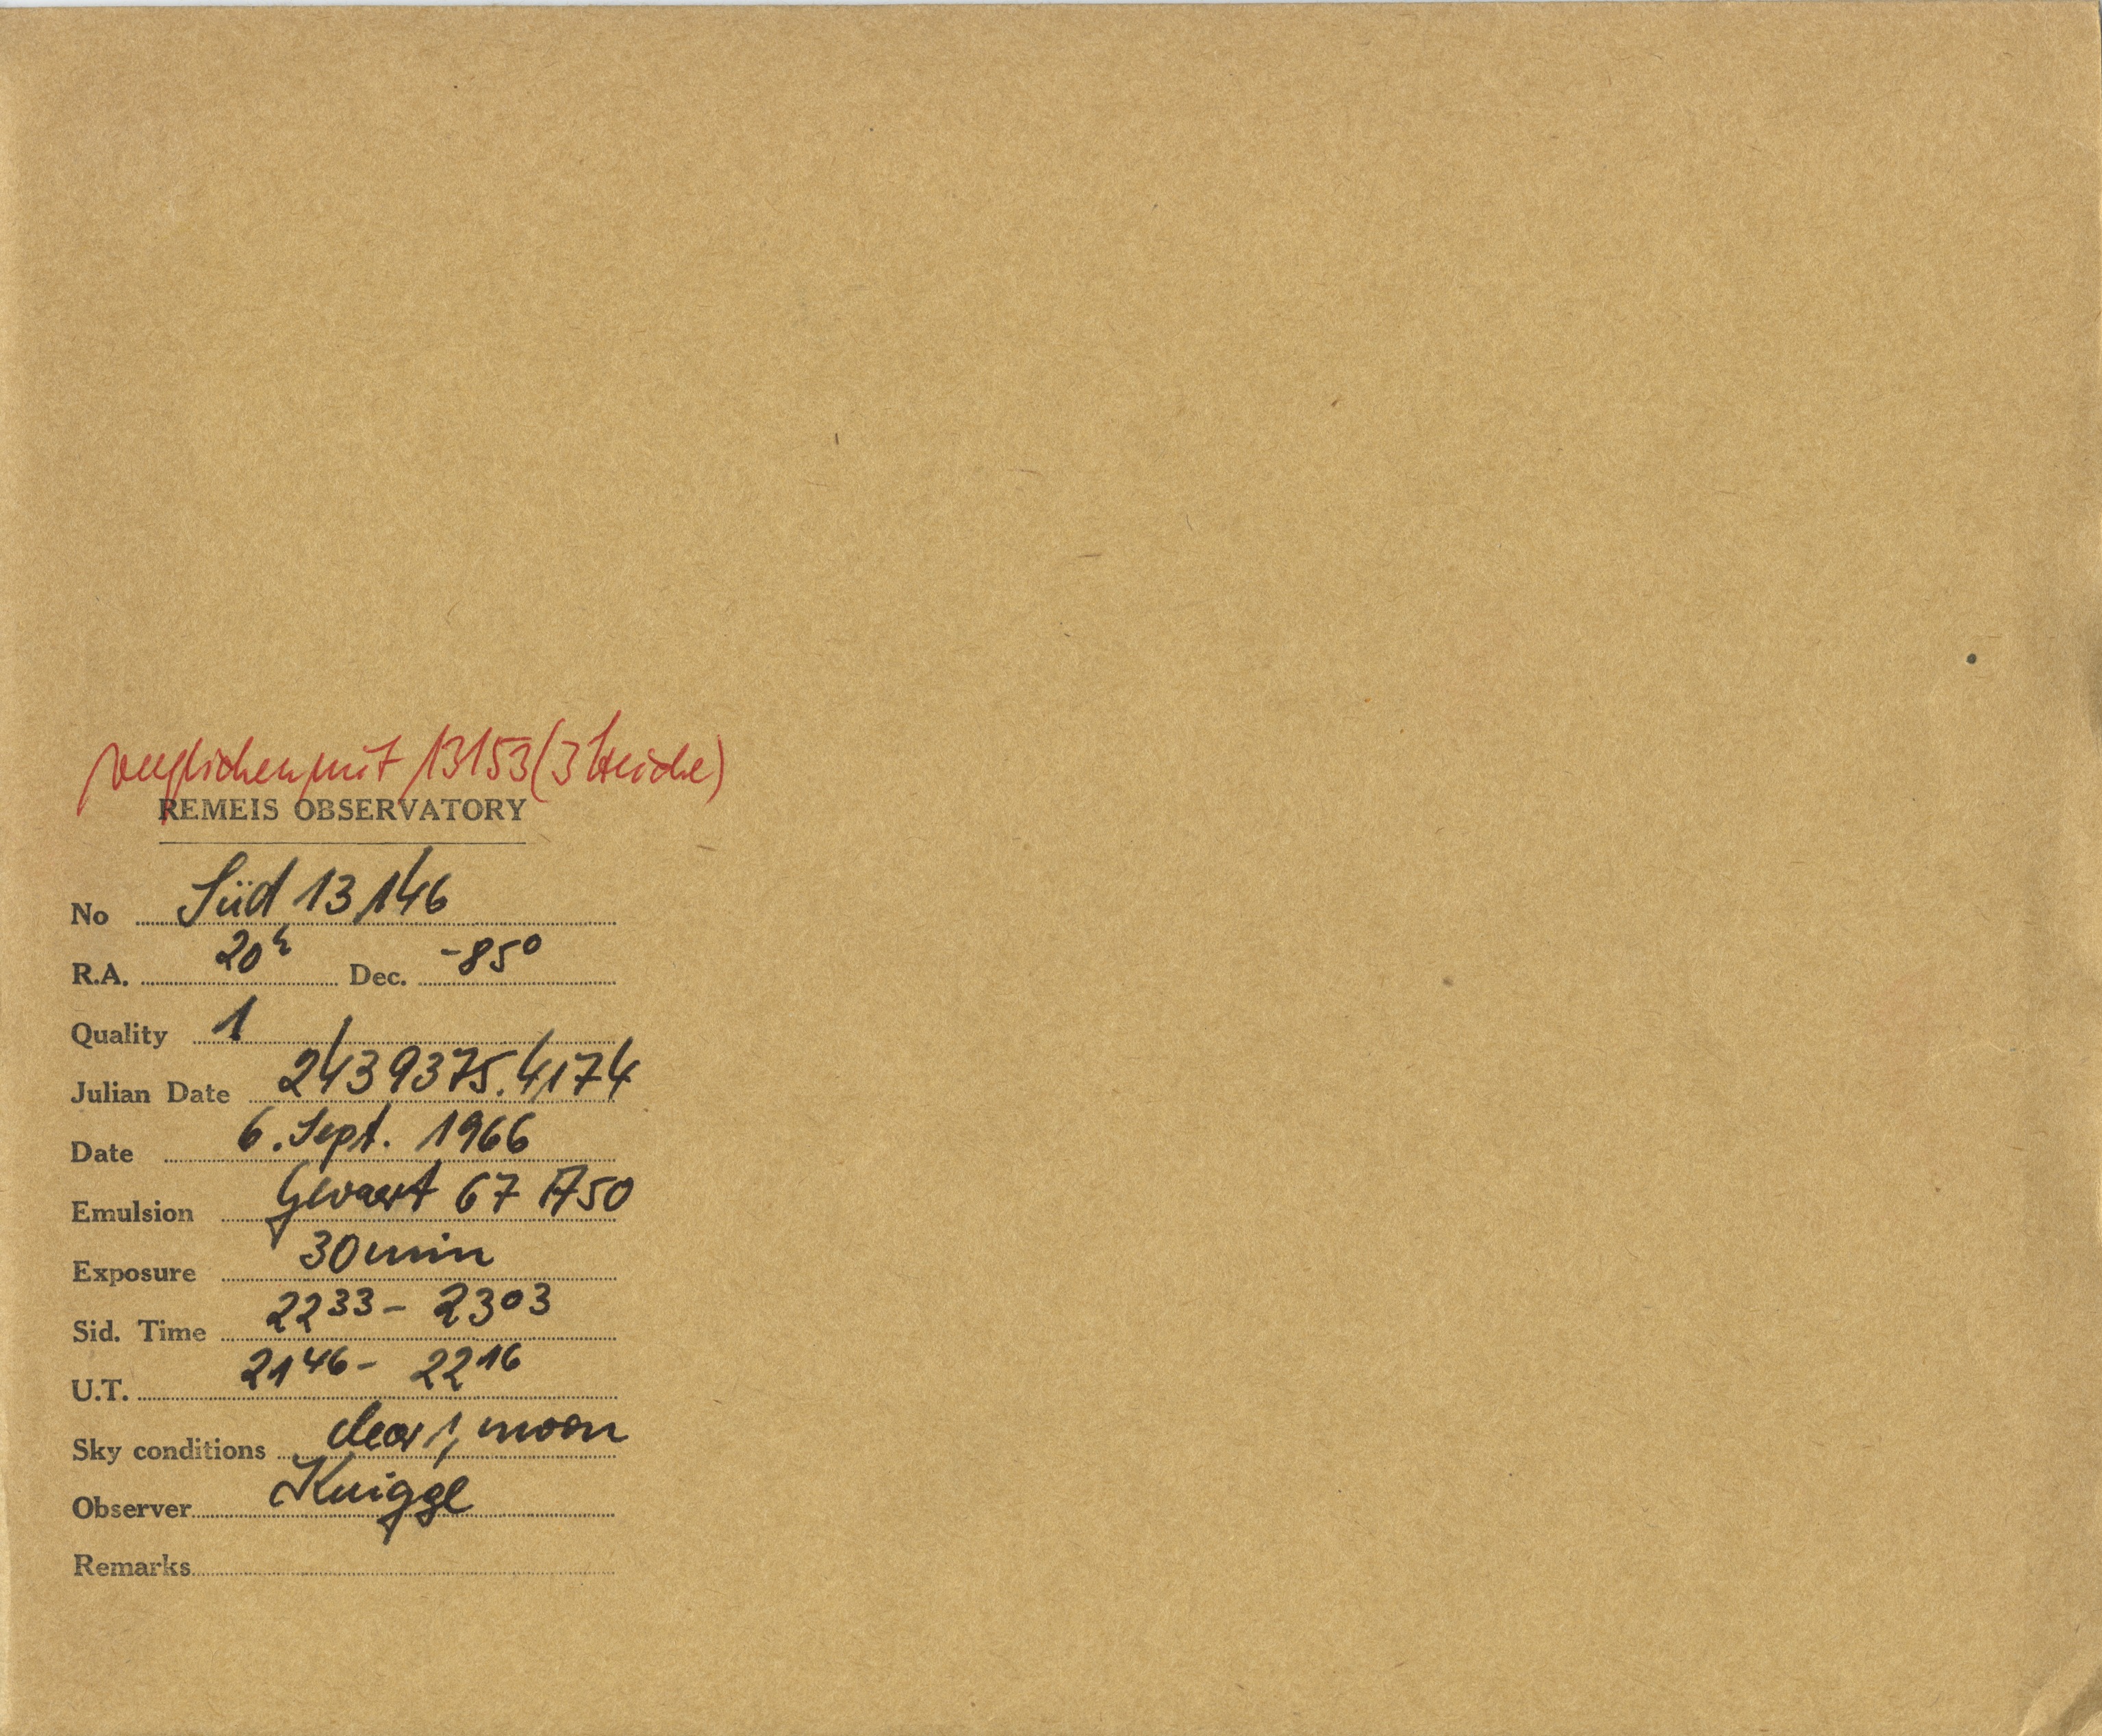 verglichen mit 13153 (3 Striche)
REMEIS OBSERVATORY
No Süd 13146
R.A. 20h Dec. -85°
Quality 1
Julian Date 2439375.4174
Date 6. Sept. 1966
Emulsion Gevaert 67 A50
Exposure 30 min
Sid. Time 22 33 - 23 03
U.T. 21 46 - 22 16
Sky conditions clear 1, moon
Observer Knigge
Remarks